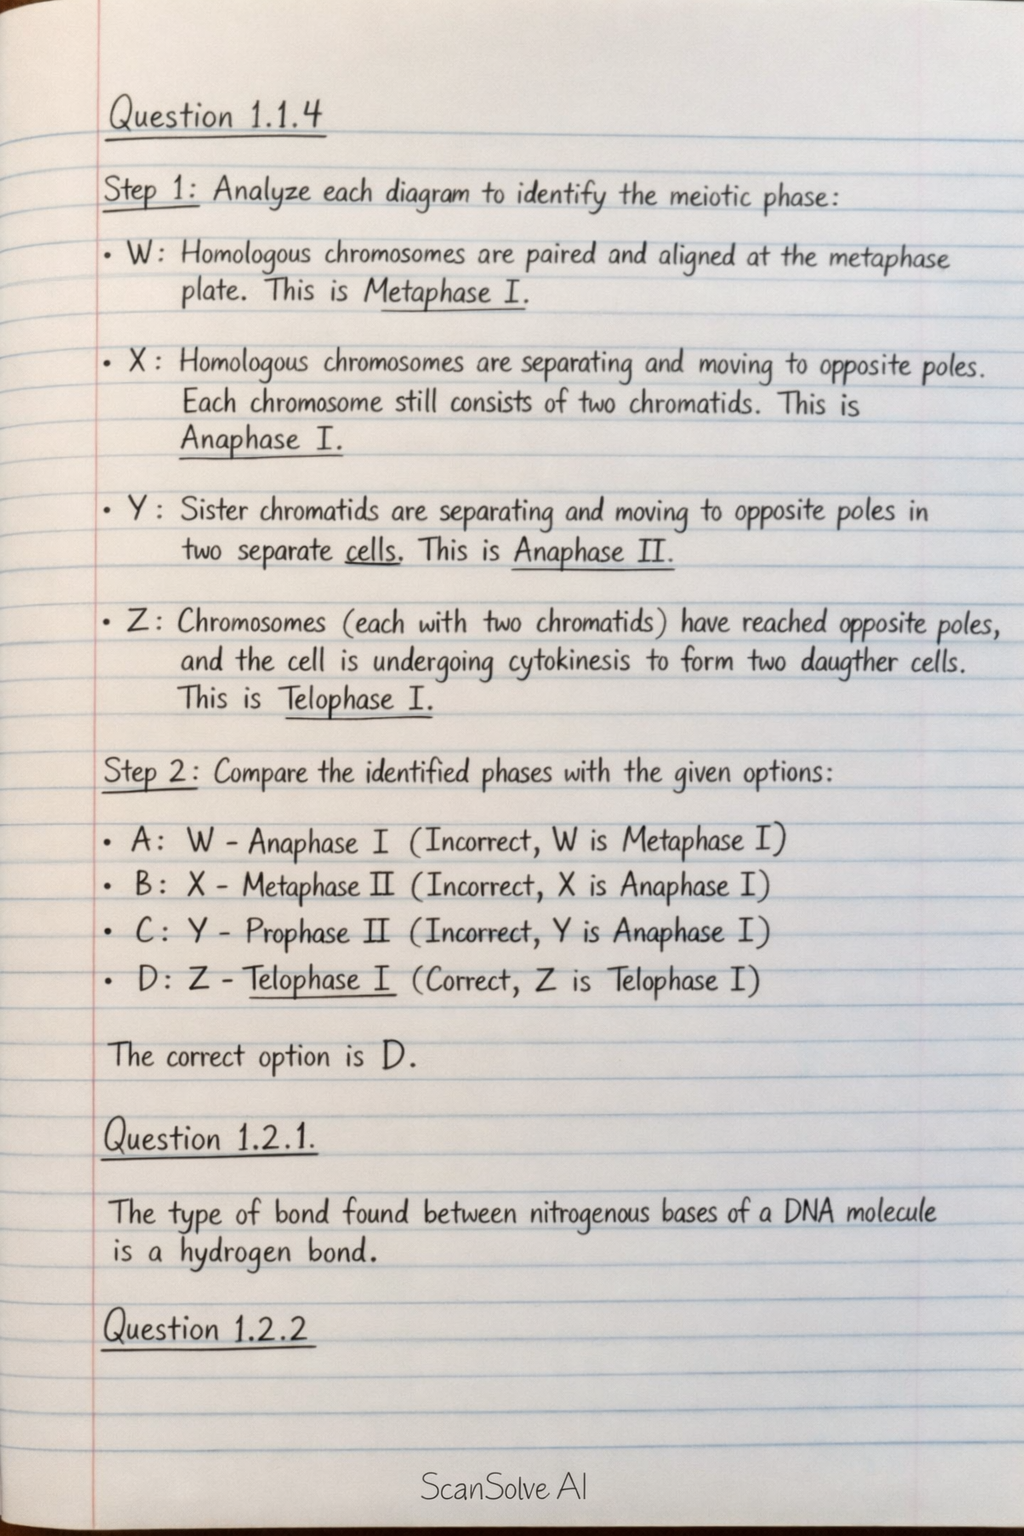 Question 1.1.4
Step 1: Analyze each diagram to identify the meiotic phase:
• W: Homologous chromosomes are paired and aligned at the metaphase
plate. This is Metaphase I.
• X: Homologous chromosomes are separating and moving to opposite poles.
Each chromosome still consists of two chromatids. This is
Anaphase I.
• Y: Sister chromatids are separating and moving to opposite poles in
two separate cells. This is Anaphase II.
• Z: Chromosomes (each with two chromatids) have reached opposite poles,
and the cell is undergoing cytokinesis to form two daugther cells.
This is Telophase I.
Step 2: Compare the identified phases with the given options:
• A: W - Anaphase I (Incorrect, W is Metaphase I)
• B: X - Metaphase II (Incorrect, X is Anaphase I)
• C: Y - Prophase II (Incorrect, Y is Anaphase I)
• D: Z - Telophase I (Correct, Z is Telophase I)
The correct option is D.
Question 1.2.1.
The type of bond found between nitrogenous bases of a DNA molecule
is a hydrogen bond.
Question 1.2.2
ScanSolve AI